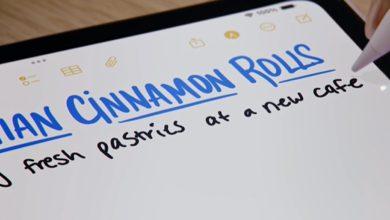 100%
CINNAMON ROLLS
fresh pastries at a new cafe